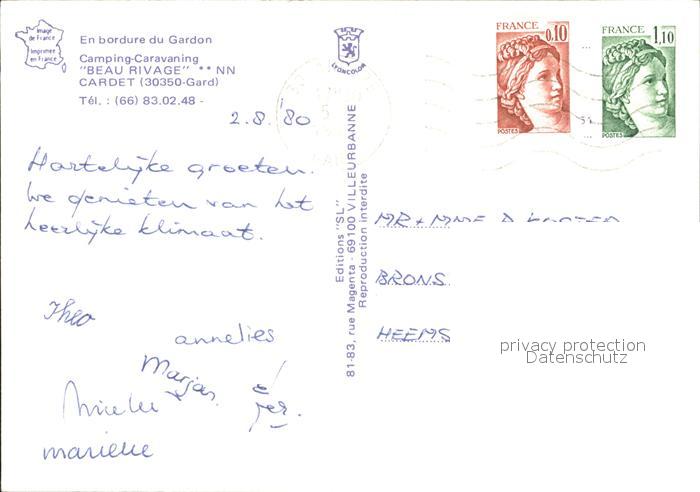 Image
de France
Imprimée
en France
En bordure du Gardon
Camping-Caravaning
"BEAU RIVAGE" ** NN
CARDET (30350-Gard)
Tél. : (66) 83.02.48 -
LYONCOLOR
FRANCE
0,10
POSTES
FRANCE
1,10
POSTES
2.8.'80
Hartelijke groeten.
We genieten van het
heerlijke klimaat.
Theo
annelies
Marjan
marielle
Editions "SL"
81-83, rue Magenta - 69100 VILLEURBANNE
Reproduction interdite
MR + MME A
BRONS
HEEMS
privacy protection
Datenschutz